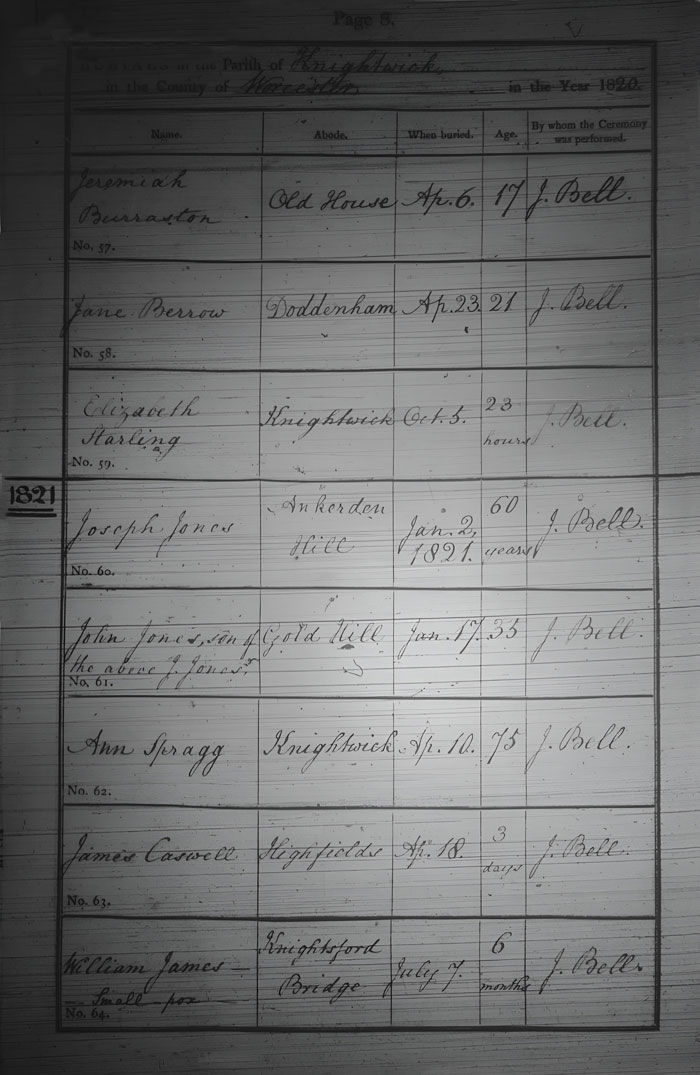 Page 8.
BURIALS in the Parish of Knightwick
in the County of Worcester in the Year 1820.
Name. Abode. When buried. Age. By whom the Ceremony was performed.
Jeremiah
Burraston Old House Ap. 6. 17 J. Bell.
No. 57.
Jane Berrow Doddenham Ap. 23. 21 J. Bell.
No. 58.
Elizabeth
Starling Knightwick Oct. 5. 23 hours J. Bell.
No. 59.
1821
Joseph Jones Ankerden Hill Jan. 2, 1821. 60 years J. Bell.
No. 60.
John Jones, son of Gold Hill Jan. 17. 35 J. Bell.
the above J. Jones.
No. 61.
Ann Spragg Knightwick Ap. 10. 75 J. Bell.
No. 62.
James Caswell Highfields Ap. 18. 3 days J. Bell.
No. 63.
William James — Knightsford Bridge July 7. 6 months J. Bell.
— Small-pox —
No. 64.